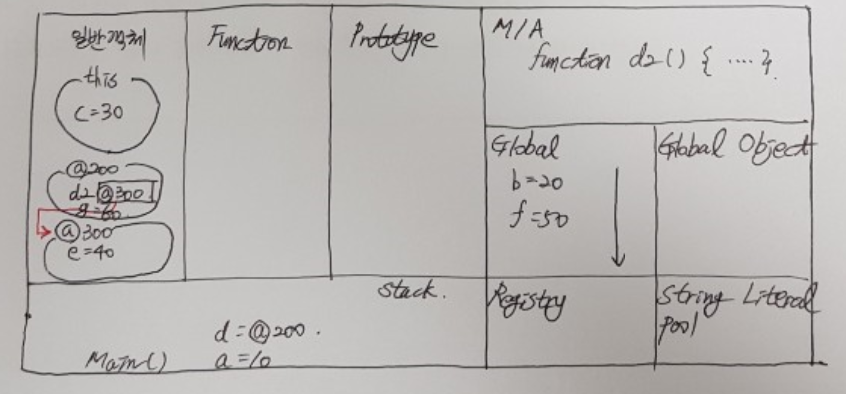 일반객체
this
c=30
@200
d2 @300
g=60
@300
e=40
Function
Prototype
M/A
function d2() { ....}
Global
b=20
f=50
Global Object
Stack.
d=@200.
Main()
a=10
Registry
String Literal
Pool